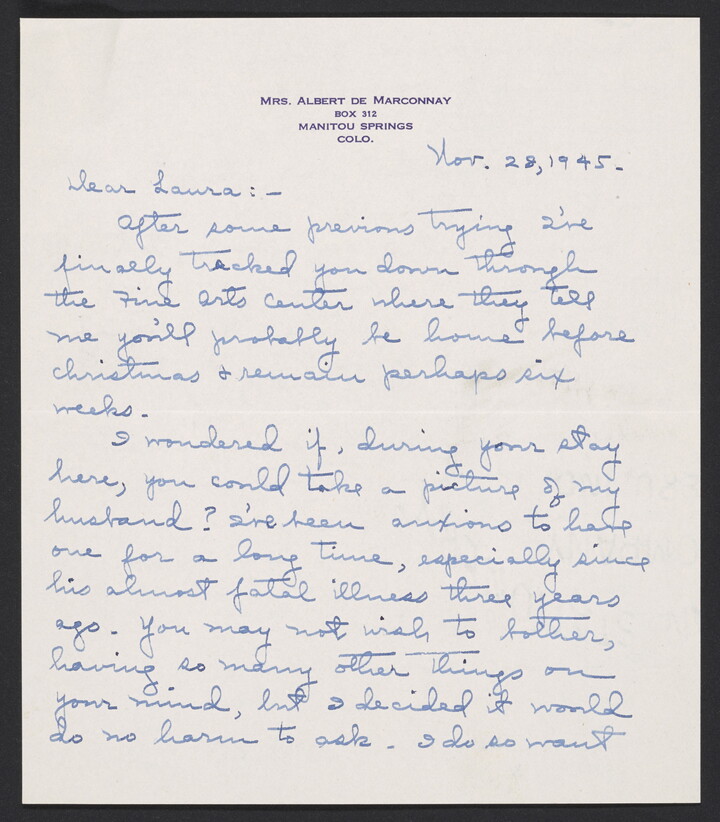 MRS. ALBERT DE MARCONNAY
BOX 312
MANITOU SPRINGS
COLO.
Nov. 28, 1945.
Dear Laura: -
After some previous trying I've
finally tracked you down through
the Fine Arts Center where they tell
me you'll probably be home before
Christmas & remain perhaps six
weeks.
I wondered if, during your stay
here, you could take a picture of my
husband? I've been anxious to have
one for a long time, especially since
his almost fatal illness three years
ago. You may not wish to bother,
having so many other things on
your mind, but I decided it would
do no harm to ask. I do so want